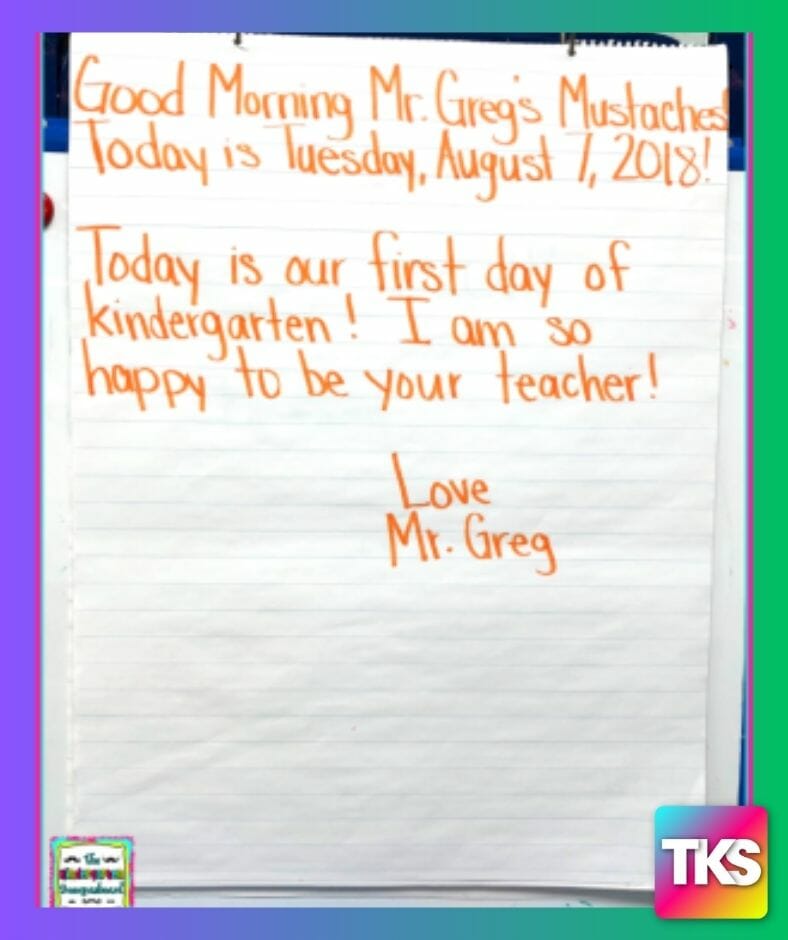 Good Morning Mr. Greg's Mustaches
Today is Tuesday, August 7, 2018!
Today is our first day of
kindergarten! I am so
happy to be your teacher!
Love
Mr. Greg
The
Kindergarten
Smorgasboard
TKS